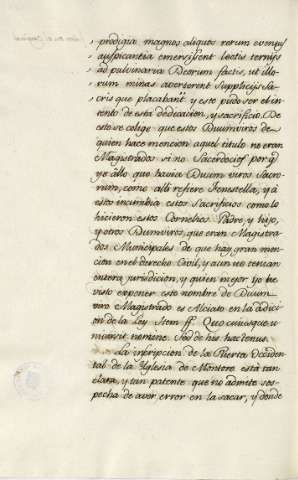 prodigia magnos aliquos rerum eventus
auspicantia emersissent lectis ternis
ad pulvinaria Deorum factis, ut illo-
rum minas averterent Supplicijs Sa-
cris que placabant y este pudo ser el in-
tento de esta dedicacion, y sacrificio. De
esto se colige que estos Duumviros de
quien hace mencion aquel titulo no eran
Magistrados si no Sacerdocios por q̃
yo allo que havia Duum viros Sacro-
rum, como alli refiere Fenestella, y á
estos incumbia estos Sacrificios como lo
hicieron estos Cornelios Padre, y hijo,
y otros Dunviros, que eran Magistra-
dos Municipales de que hay gran men-
cion en el derecho Civil, y aun no tenian
entera jurisdicion, y quien mejor yo he
visto exponer este nombre de Duum
viro Magistrado es Alciato en la adici-
on de la Ley Item ff. Quo cuiusque u-
niversit nomine. Sed de his hactenus.
La inscripcion de la Puerta Occiden-
tal de la Iglesia de Montoro está tan
clara, y tan patente que no admite sos-
pecha de aver error en la sacar, y donde